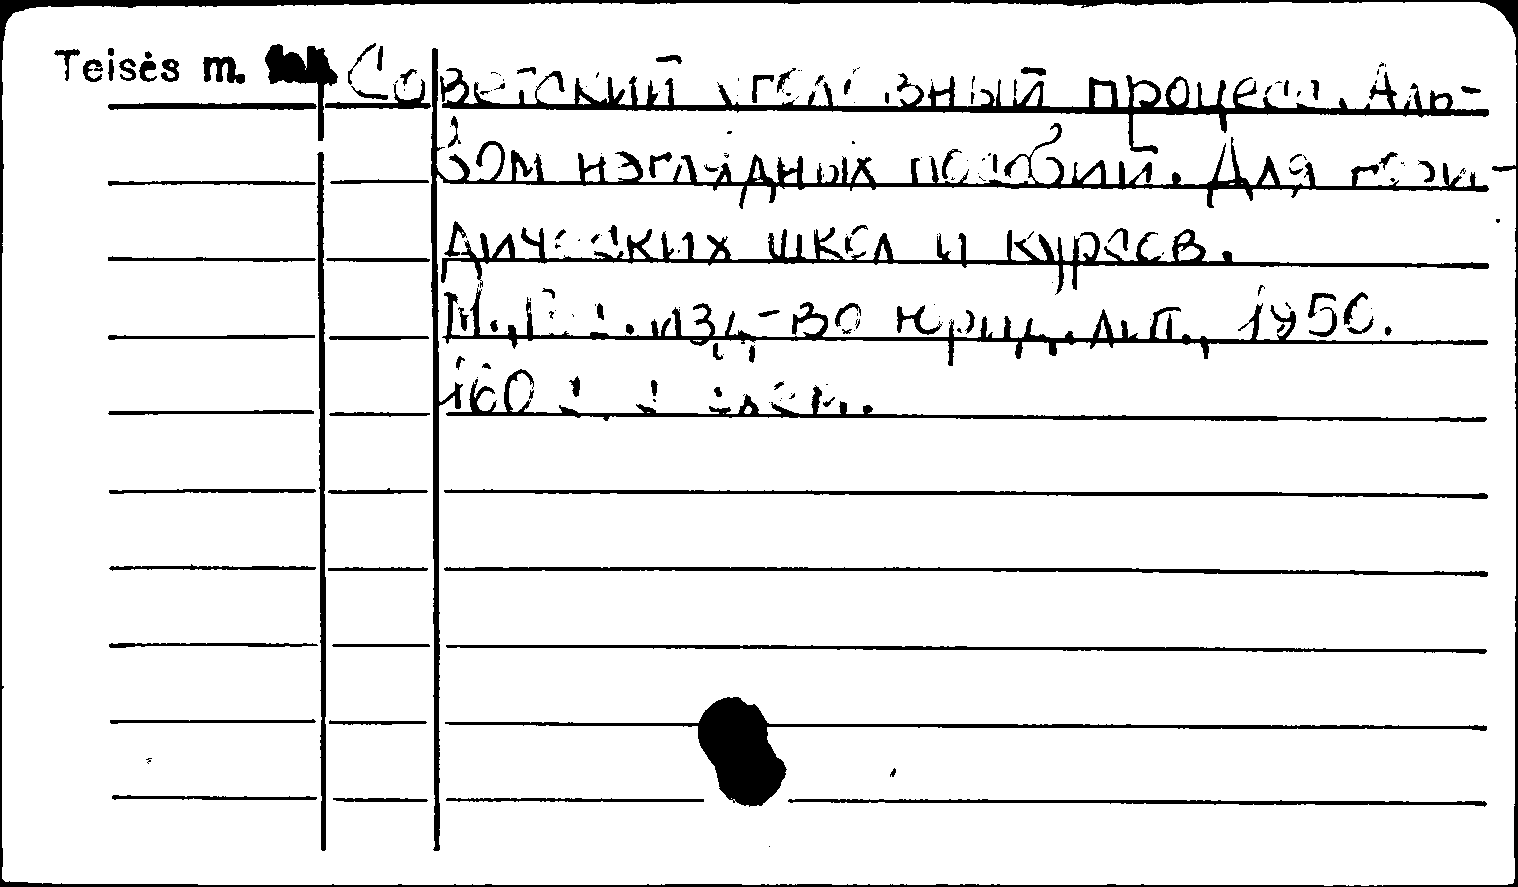 Teisės m. Советский уголовный процесс. Аль-
бом наглядных пособий. Для юри-
дических школ и курсов.
М., Гос. изд-во юрид. лит., 1950.
160 с.